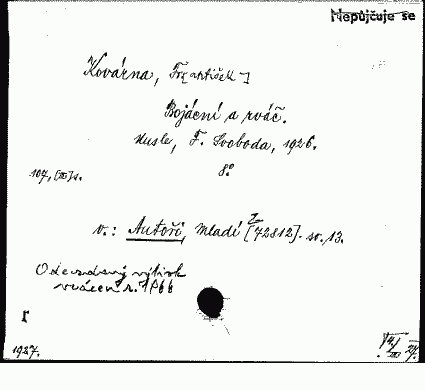 Nepůjčuje se
Kovárna, Fr[antišek]
Bojácní a rváč.
Nusle, F. Svoboda, 1926.
107, [III] s. 8°
v.: Autoři, mladí [Z 72812]. sv. 13.
Odevzdaný výtisk
vrácen r. 1966
r
1927.